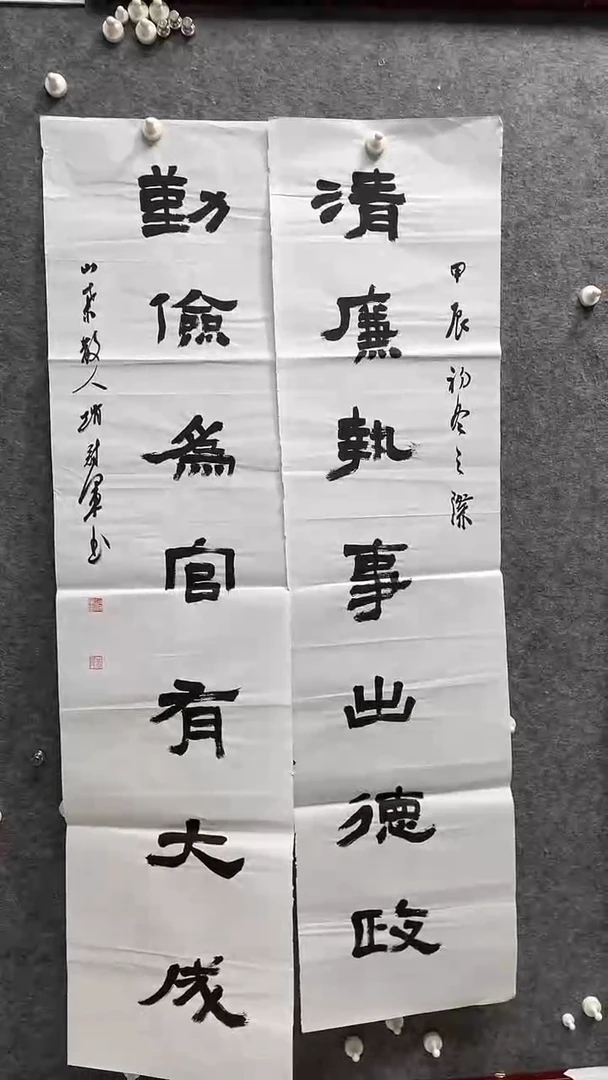 清廉執事出德政
甲辰初冬之際
勤儉為官有大成
山東散人 軍書